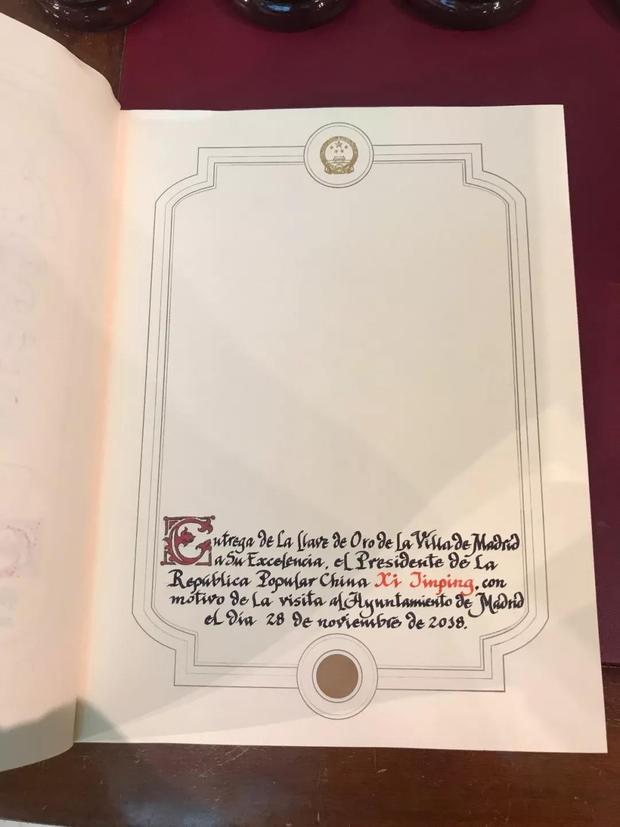 Entrega de la Llave de Oro de la Villa de Madrid
a Su Excelencia, el Presidente de la
República Popular China Xi Jinping, con
motivo de la visita al Ayuntamiento de Madrid
el día 28 de noviembre de 2018.